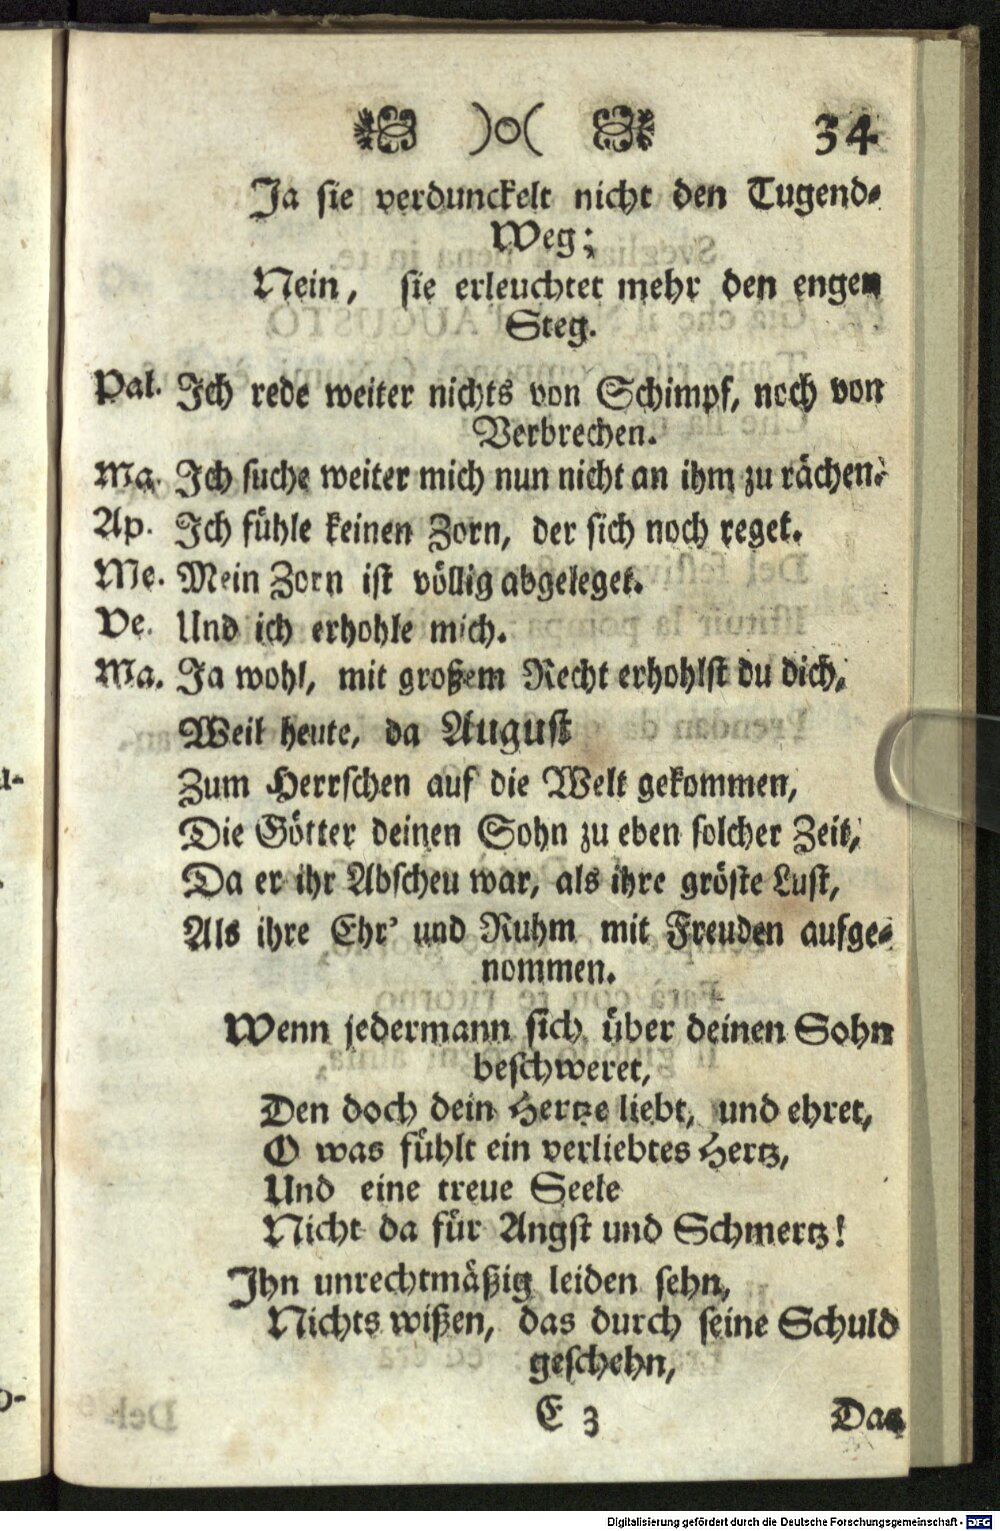 )o( 34
Ja sie verdunckelt nicht den Tugend-
Weg;
Nein, sie erleuchtet mehr den engen
Steg.
Pal. Ich rede weiter nichts von Schimpf, noch von
Verbrechen.
Ma. Ich suche weiter mich nun nicht an ihm zu rächen.
Ap. Ich fühle keinen Zorn, der sich noch reget.
Me. Mein Zorn ist völlig abgeleget.
Ve. Und ich erhohle mich.
Ma. Ja wohl, mit großem Recht erhohlst du dich,
Weil heute, da August
Zum Herrschen auf die Welt gekommen,
Die Götter deinen Sohn zu eben solcher Zeit,
Da er ihr Abscheu war, als ihre gröste Lust,
Als ihre Ehr' und Ruhm mit Freuden aufge-
nommen.
Wenn jedermann sich über deinen Sohn
beschweret,
Den doch dein Hertze liebt, und ehret,
O was fühlt ein verliebtes Hertz,
Und eine treue Seele
Nicht da für Angst und Schmertz!
Ihn unrechtmäßig leiden sehn,
Nichts wißen, das durch seine Schuld
geschehn,
E 3 Das
Digitalisierung gefördert durch die Deutsche Forschungsgemeinschaft - DFG